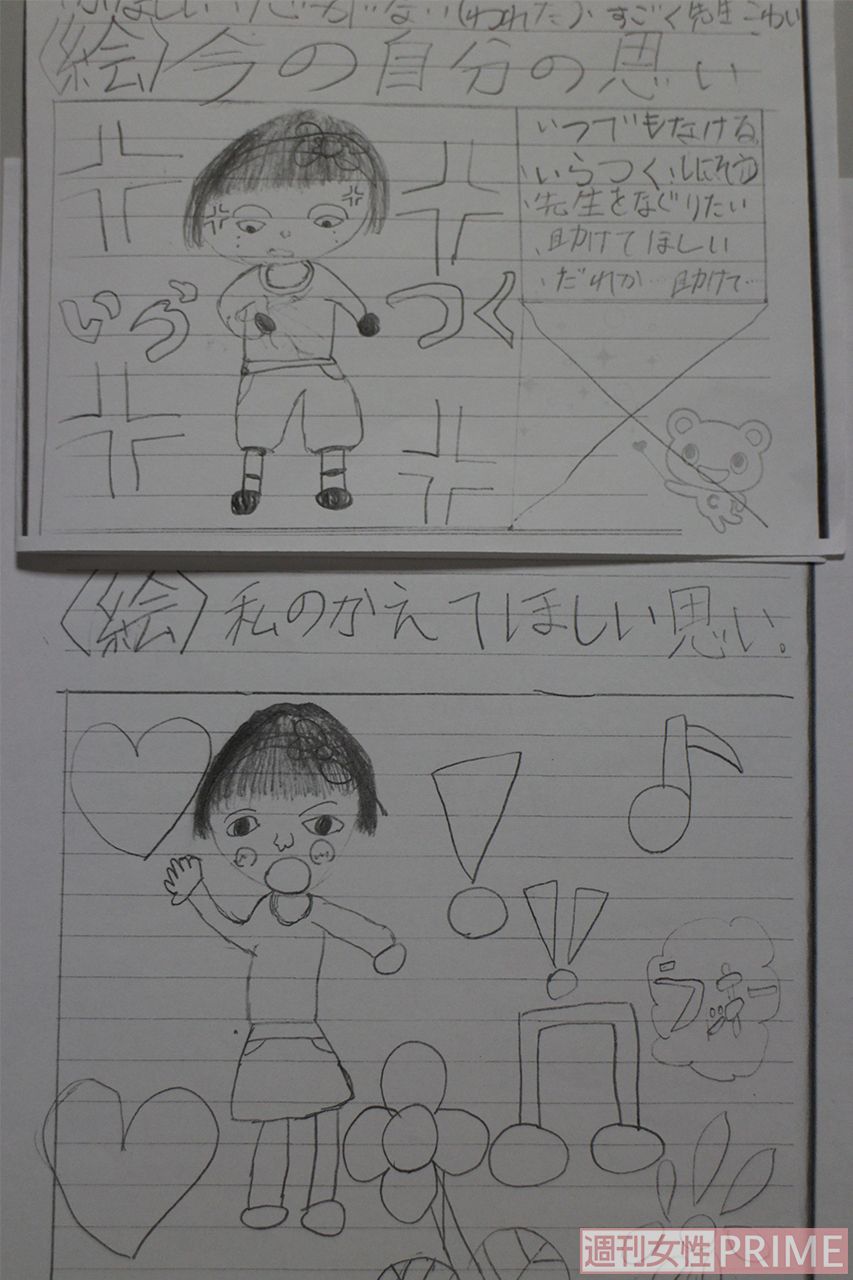 ない(われた)、すごく先生こわい
〈絵〉今の自分の思い
いつでもなける。
いらつく、しにそう
先生をなぐりたい
助けてほしい
だれか…助けて…
いらつく
〈絵〉私のかえてほしい思い。
週刊女性PRIME